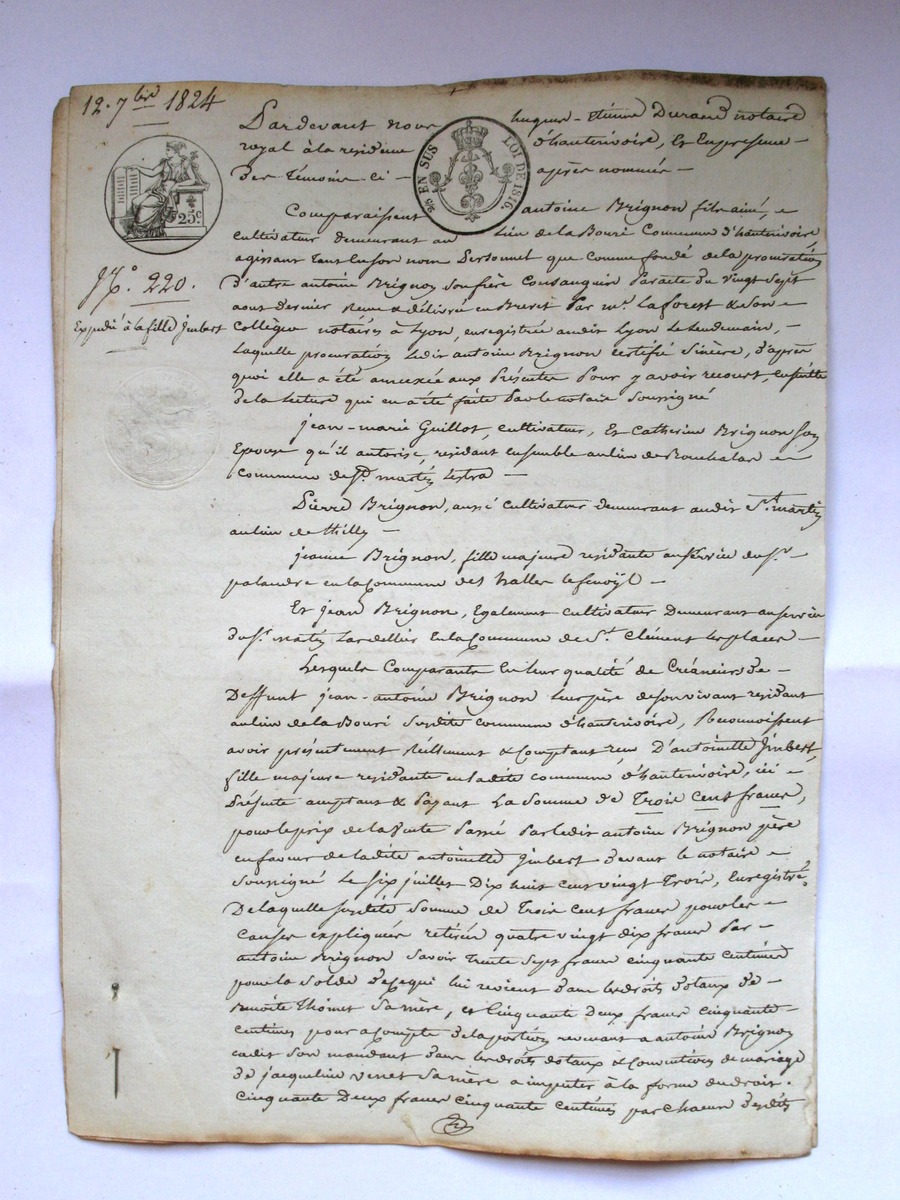 12. 7bre 1824
25 c
EN SUS LOI DE 1816.
N.o 220.
Expédié à la fille jmbert
Pardevant nous hugues-étienne Durand notaire
royal à la résidence d'hauterivoire, Et En présence
Des Témoins ci- après nommés
Comparaissent antoine Brignon fils ainé,
cultivateur demeurant au Lieu de la Bouri Commune d'hauterivoire,
agissant tant En Son nom Personnel que comme fondé de la procuration
D'autre antoine Brignon Son frère Consanguin Par acte du vingt Sept
aout Dernier Reçue & délivrée en Brevet Par me. Laforest & Son
Collègue notaires à Lyon, enregistrée audit Lyon Le Lendemain,
Laquelle procuration Ledit antoine Brignon certifié Sincère, D'après
quoi elle a été annexée aux Présentes Pour y avoir recours, Ensuitte
de la Lecture qui en a été faite Par le notaire Soussigné
jean-marie Guillot, cultivateur, Et Catherine Brignon Son
Epouse qu'il autorise, résidant ensemble au lieu de
Commune de St. martin Lestra
Pierre Brignon, aussi cultivateur demeurant audit St. martin
au lieu de Thilly
jeanne Brignon, fille majeure résidante au Service du Sr.
palandre en la Commune des halles le fenoÿl
Et jean Brignon, Egalement cultivateur Demeurant au Service
Du Sr. En la Commune de St. Clément les places
Lesquels Comparants En leur qualité de Créanciers de
Deffunt jean-antoine Brignon Leur père de son vivant résidant
au lieu de la Bouri Susdite commune d'hauterivoire, Reconnoissent
avoir présentement Réellement & Comptant reçu D'antoinette jmbert,
fille majeure résidante en ladite commune d'hauterivoire, ici
Présente acceptant & Payant La Somme de Trois Cent francs,
pour le prix de la Vente Passée Par ledit antoine Brignon père
en faveur de ladite antoinette jmbert devant le notaire
Soussigné Le Six juillet Dix huit cent vingt Trois, Enregistrée
De laquelle susdite Somme de Trois Cent francs pour les
Causes expliquées retirée quatre vingt dix francs Par
antoine Brignon Savoir Trente Sept francs cinquante centimes
pour la Solde de ce qui lui revient dans les droits dotaux de
Benoite Thomet Sa mère, et Cinquante Deux francs cinquante
centimes pour acompte de la portion revenant a antoine Brignon
cadet Son mandant dans les droits dotaux & Conventions de mariage
de jacqueline venet Sa mère a imputer à la forme du droit.
Cinquante Deux francs cinquante centimes par chacun desdits